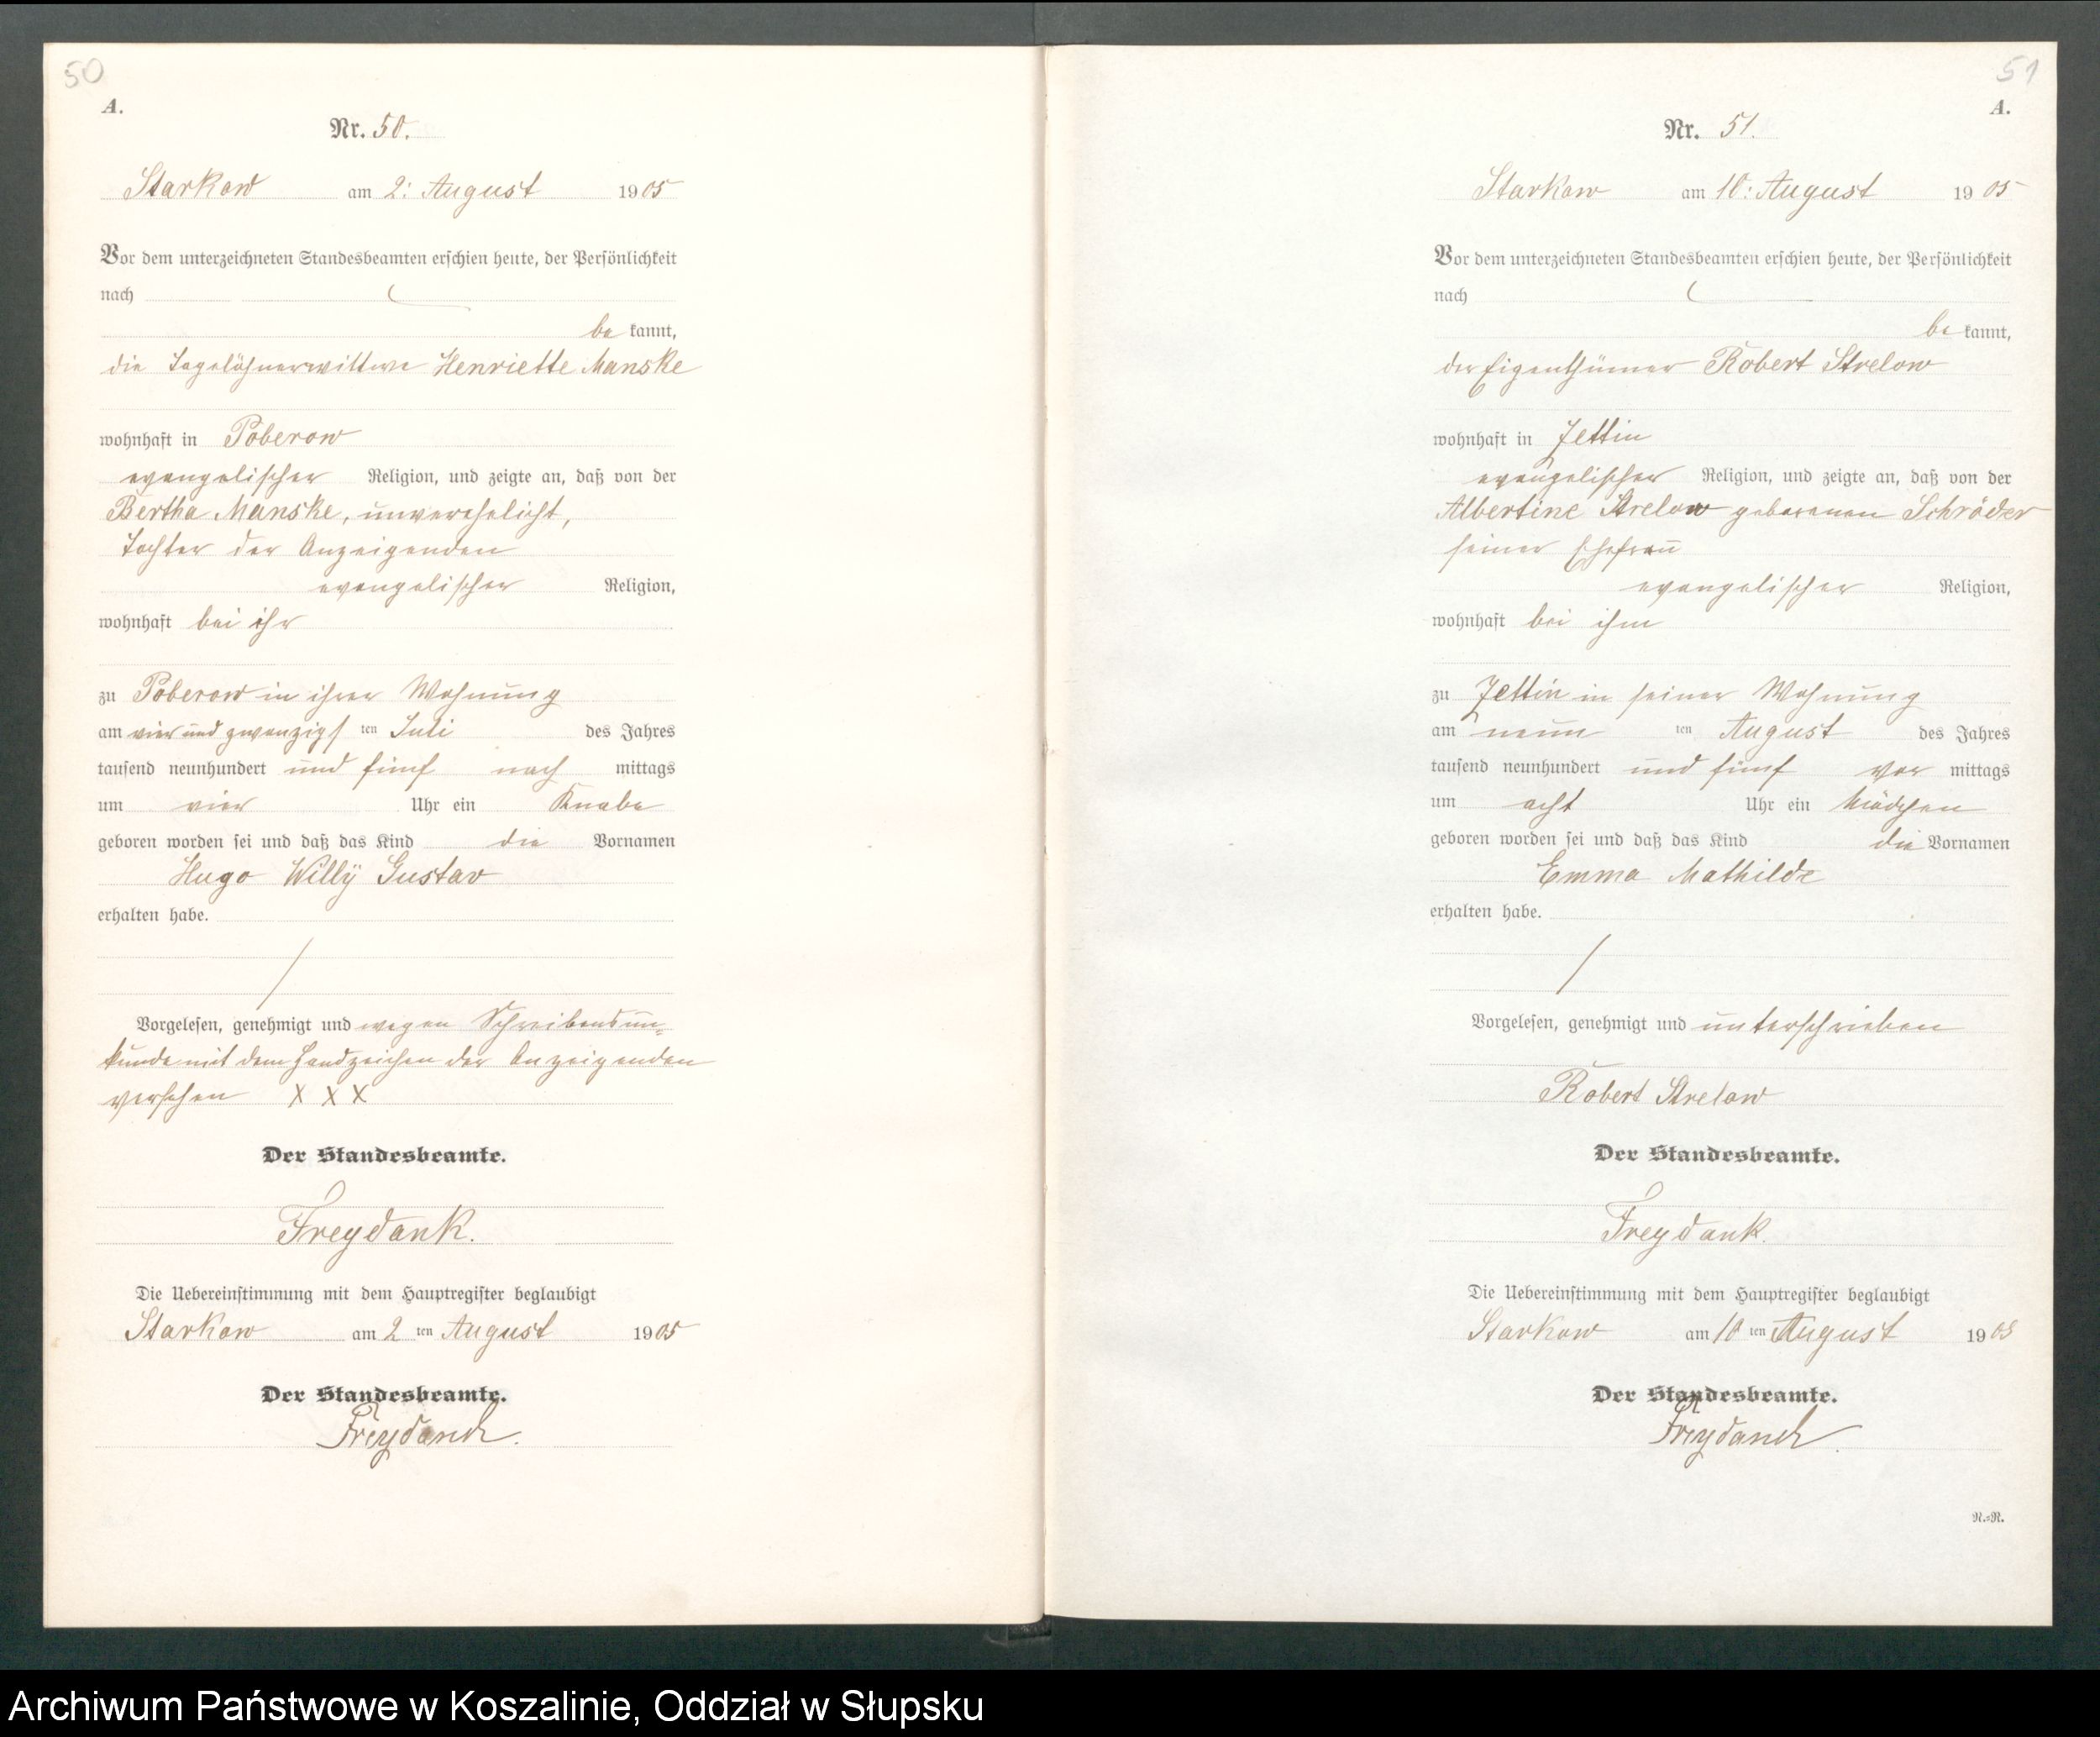 50
A.
Nr. 50.
Starkow am 2: August 1905
Vor dem unterzeichneten Standesbeamten erschien heute, der Persönlichkeit
nach
be kannt,
die Tagelöhnerwittwe Henriette Manske
wohnhaft in Poberow
evangelischer Religion, und zeigte an, daß von der
Bertha Manske, unverehelicht,
Tochter der Anzeigenden
evangelischer Religion,
wohnhaft bei ihr
zu Poberow in ihrer Wohnung
am vier und zwanzigs ten Juli des Jahres
tausend neunhundert und fünf nach mittags
um vier Uhr ein Knabe
geboren worden sei und daß das Kind die Vornamen
Hugo Willÿ Gustav
erhalten habe.
Vorgelesen, genehmigt und wegen Schreibensun-
kunde mit dem Handzeichen der Anzeigenden
versehen X X X
Der Standesbeamte.
Freydank.
Die Uebereinstimmung mit dem Hauptregister beglaubigt
Starkow am 2 ten August 1905
Der Standesbeamte.
Freydank.
51
A.
Nr. 51.
Starkow am 10: August 1905
Vor dem unterzeichneten Standesbeamten erschien heute, der Persönlichkeit
nach
be kannt,
der Eigenthümer Robert Strelow
wohnhaft in Jettin
evangelischer Religion, und zeigte an, daß von der
Albertine Strelow geborenen Schröder
seiner Ehefrau
evangelischer Religion,
wohnhaft bei ihm
zu Jettin in seiner Wohnung
am neun ten August des Jahres
tausend neunhundert und fünf vor mittags
um acht Uhr ein Mädchen
geboren worden sei und daß das Kind die Vornamen
Emma Mathilde
erhalten habe.
Vorgelesen, genehmigt und unterschrieben
Robert Strelow
Der Standesbeamte.
Freydank.
Die Uebereinstimmung mit dem Hauptregister beglaubigt
Starkow am 10 ten August 1905
Der Standesbeamte.
Freydank.
N.=N.
Archiwum Państwowe w Koszalinie, Oddział w Słupsku